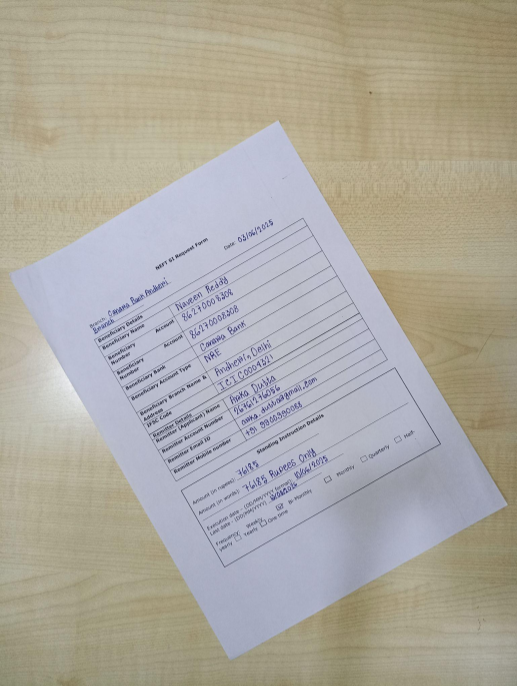 NEFT SI Request Form
Date: 03/06/2025
Branch: Canara Bank Andheri
Branch
Beneficiary Details
Beneficiary Name Naveen Reddy
Beneficiary Account Number 86270008208
Beneficiary Account Number 86270008208
Beneficiary Bank Canara Bank
Beneficiary Account Type NRE
Beneficiary Branch Name & Address Andheri, Delhi
IFSC Code ICIC0004321
Remitter Details
Remitter (Applicant) Name Aaka Dutta
Remitter Account Number
Remitter Email ID
Remitter Mobile number
Standing Instruction Details
Amount (in rupees): 76185
Amount (in words): 76185 Rupees Only
Execution date - (DD/MM/YYYY format): 10/06/2025
Last date - (DD/MM/YYYY)
Frequency: Weekly Bi-Monthly Monthly Quarterly Half-
yearly Yearly One time